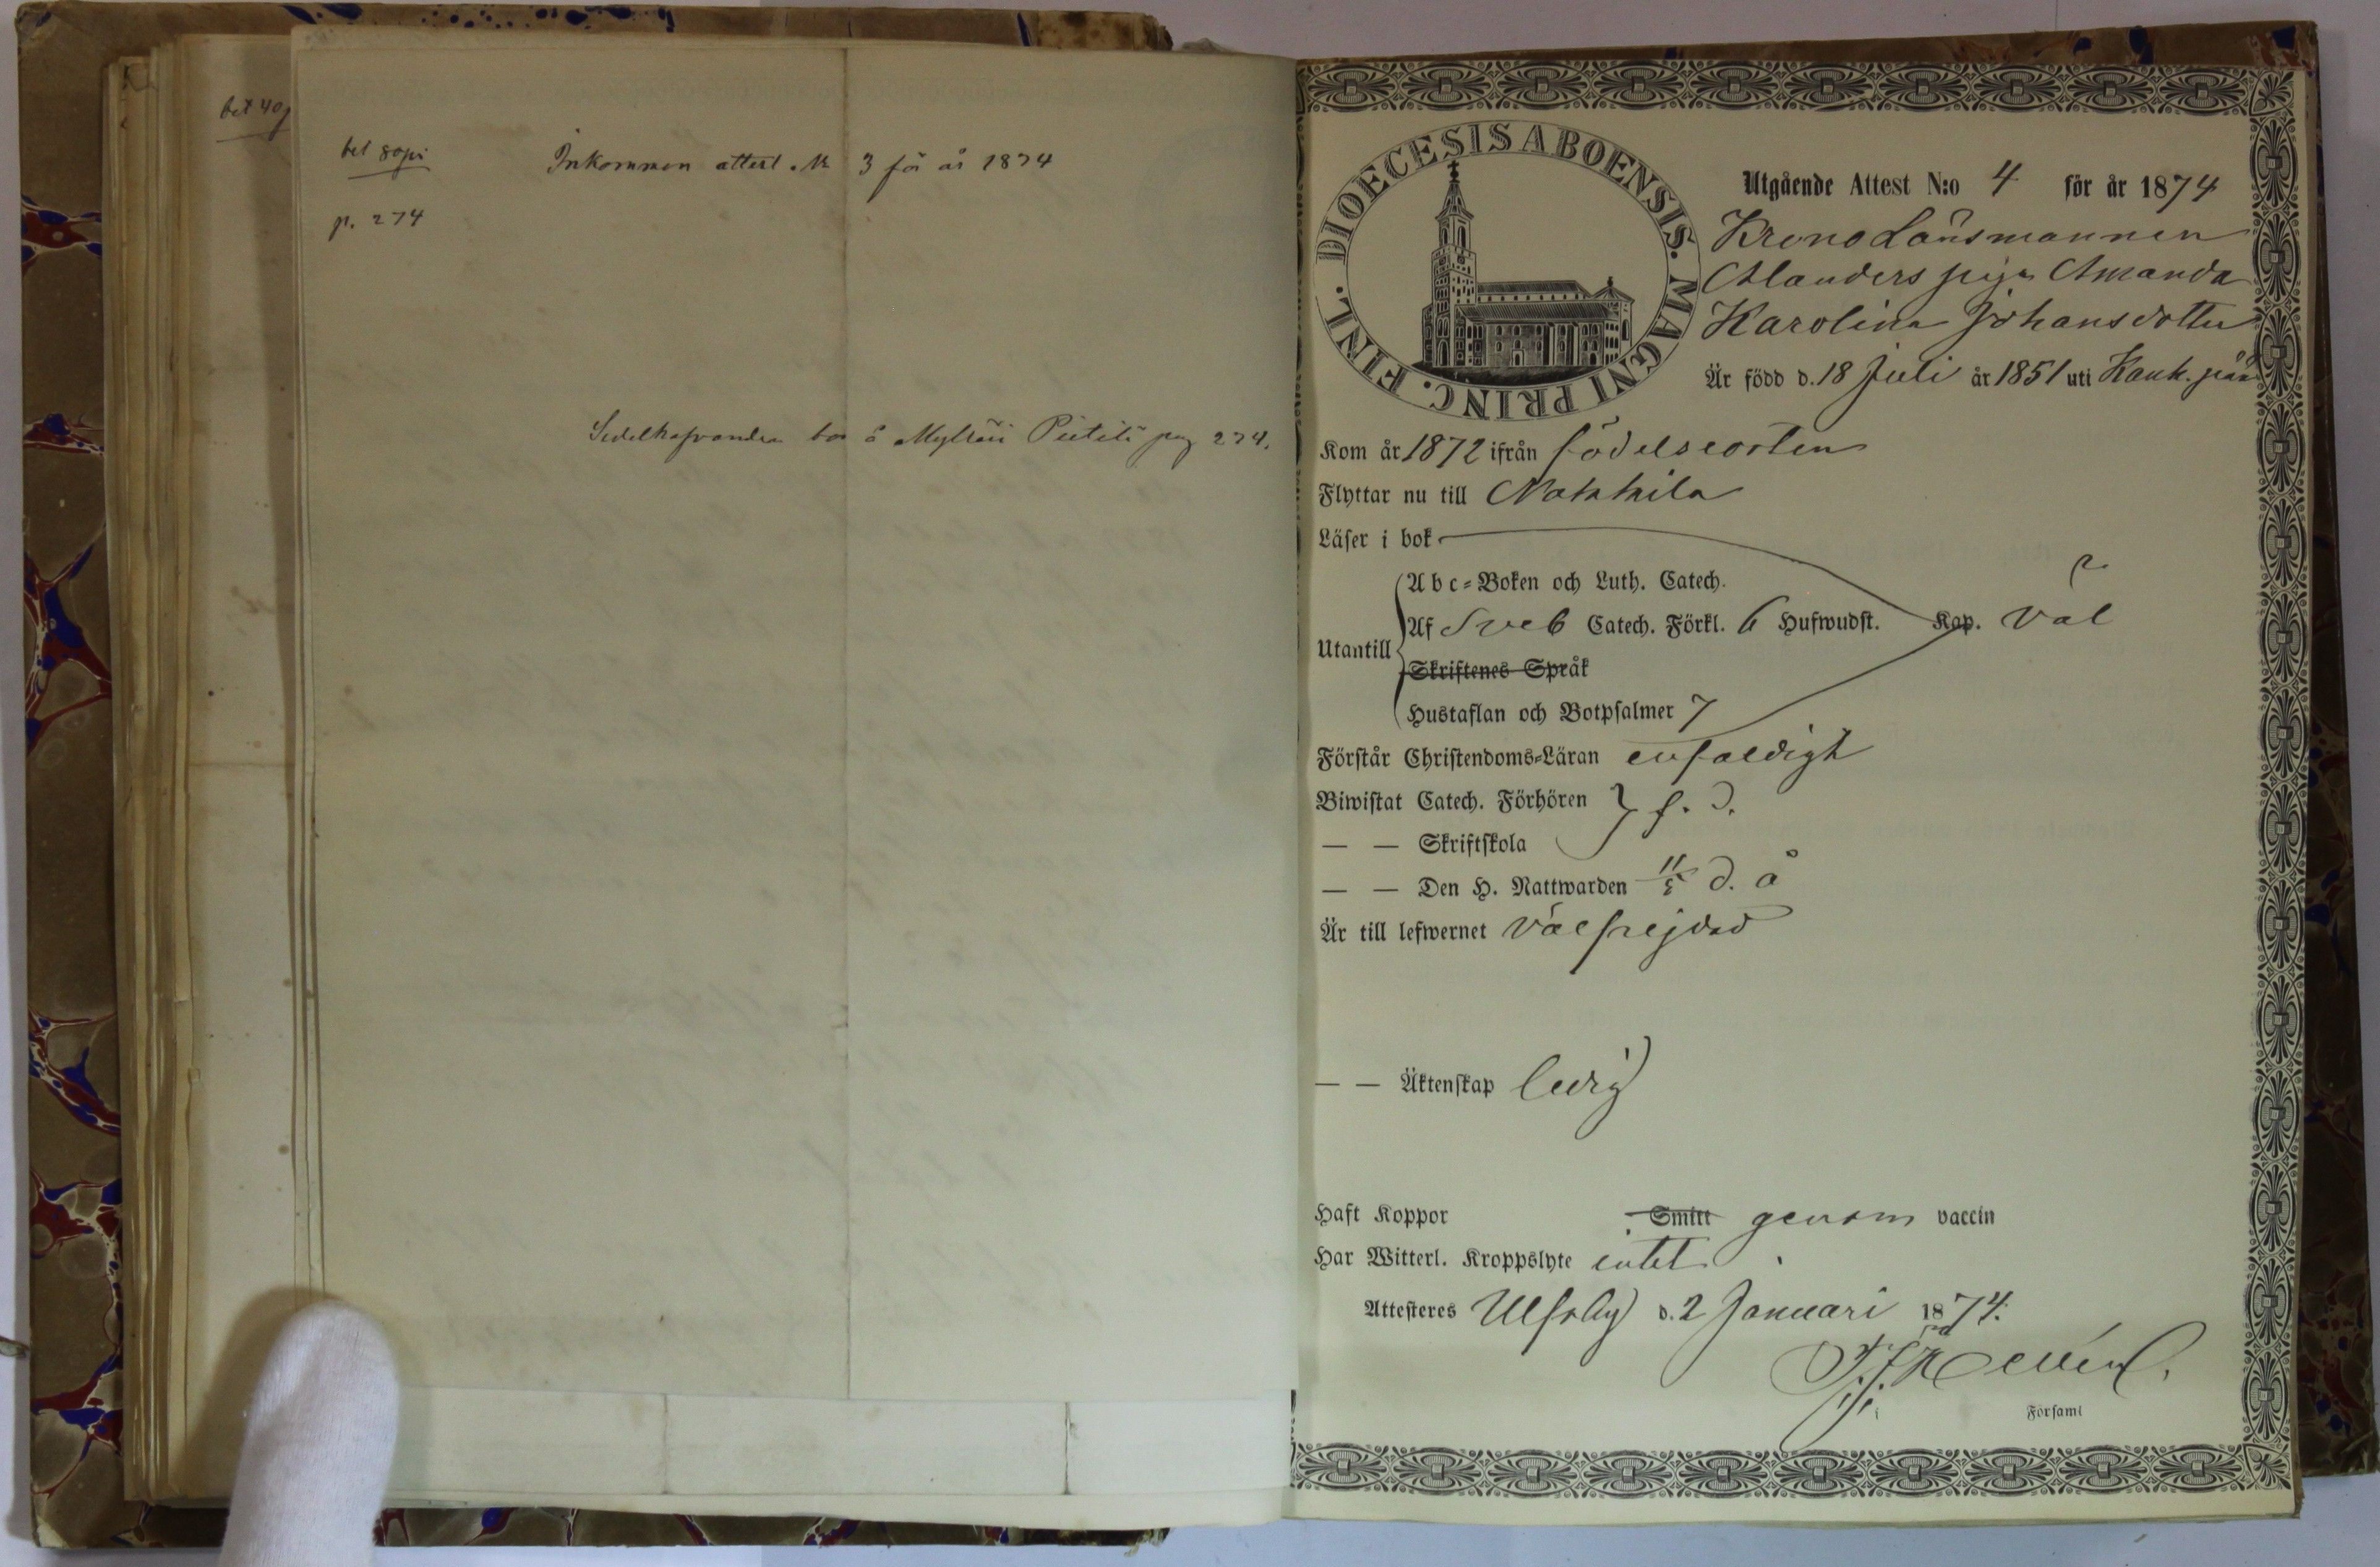 bet 40p
bet 80pi
p. 274
Inkommen attest No 3 för år 1874
Sedelhafvanden bor å Myltäri Pietilä pag 274.
FINL. DIOECESIS ABOENSIS. MAGNI PRINC.
Utgående Attest N:o 4 för år 1874
Krono Länsmannen
Alanders piga Amanda
Karolina Johansdotter
Är född d. 18 Juli år 1851 uti Kank. pää
Kom år 1872 ifrån födelseorten
Flyttar nu till Nakkila
Läser i bok
Abc-Boken och Luth. Catech.
Utantill Af Sveb Catech. Förkl. 6 Hufwudst. Kap. väl
Skriftenes Språk
Hustaflan och Botpsalmer 7
Förstår Christendoms-Läran enfaldigt
Biwistat Catech. Förhören } f. d.
— — Skriftskola
— — Den H. Nattwarden d. å
Är till lefwernet välfrejdad
— — Äktenskap ledig
Haft Koppor Smitt genom vaccin
Har Witterl. Kroppslyte intet
Attesteres Ulfsby d. 2 Januari 1874.
Forsaml